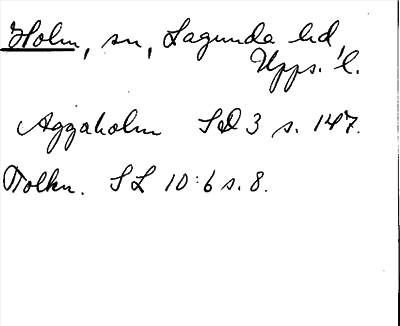 Holm, sn, Lagunda hd,
Upps. l.
Aggaholm SD 3 s. 147.
Tolkn. SL 10:6 s. 8.